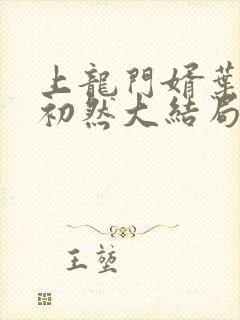 上龍門婿葉
初然大結局
王堃